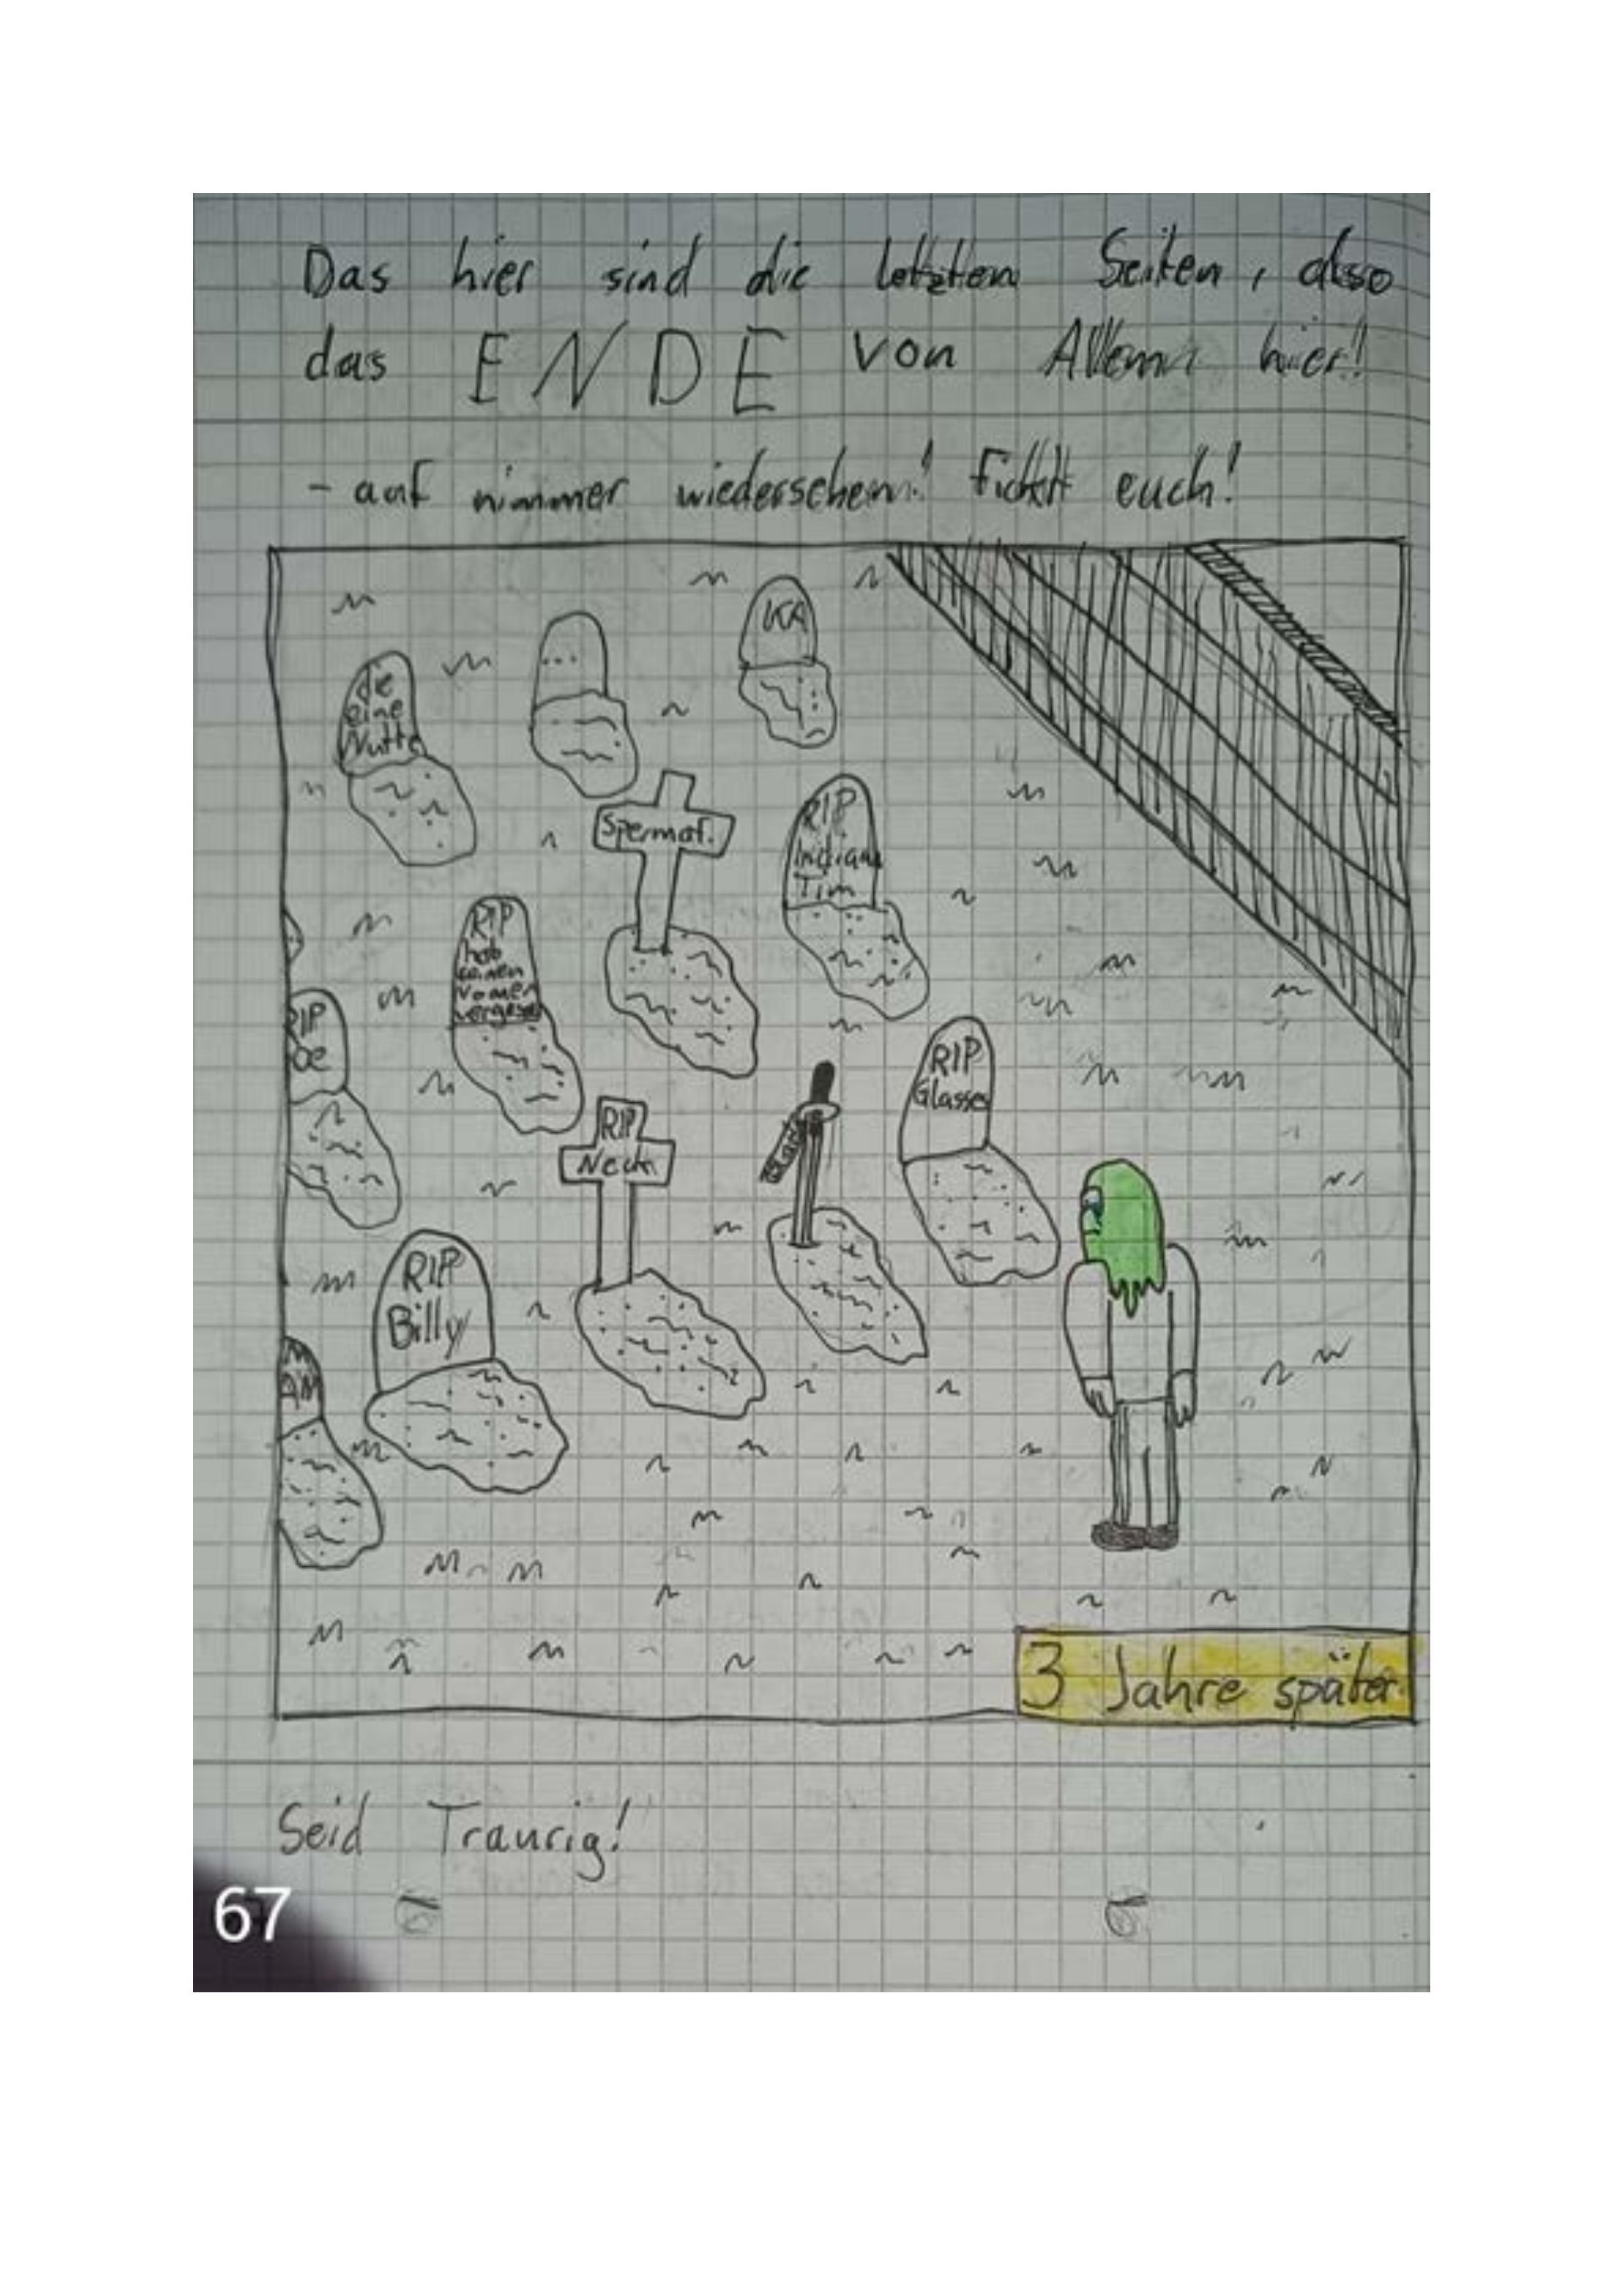 Das hier sind die letzten Seiten, also
das ENDE von Allem hier!
- auf nimmer wiedersehen! Fickt euch!
KA
die
eine
Nutte
...
Spermaf.
RIP
Indiana
Tim
RIP
hab
seinen
Namen
vergessen
RIP
oe
RIP
Glasses
RIP
Neck
RIP
Billy
AM
3 Jahre später
Seid Traurig!
67